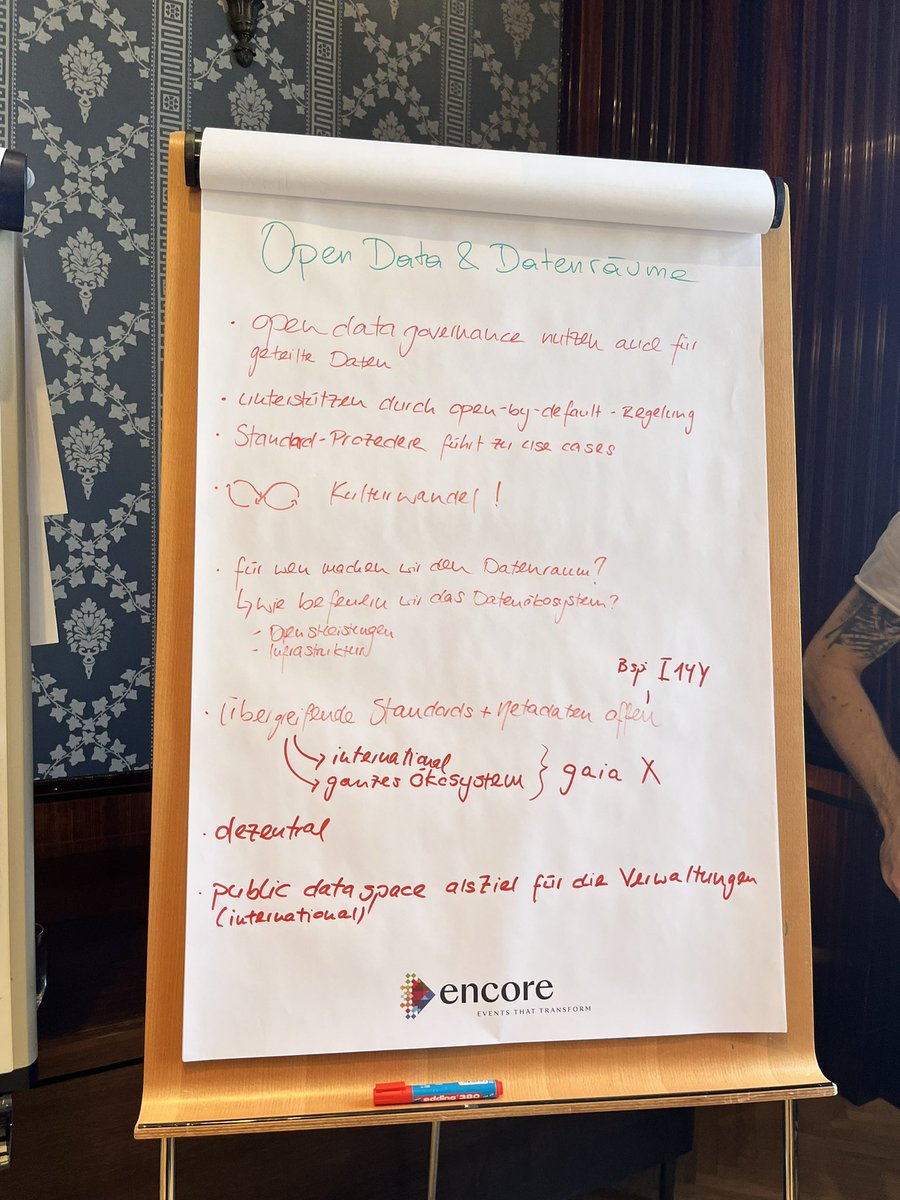 Open Data & Datenräume
· open data governance nutzen auch für
geteilte Daten
· unterstützen durch open-by-default-Regelung
· Standard-Prozedere führt zu use cases
· Kulturwandel!
· für wen machen wir den Datenraum?
↳ wie befeuern wir das Datenökosystem?
- Dienstleistungen
- Infrastruktur
Bsp I14Y
· Übergreifende Standards + Metadaten offen
→ international
→ ganzes Ökosystem } gaia X
· dezentral
· public data space als Ziel für die Verwaltungen
(international)
encore
EVENTS THAT TRANSFORM
edding 380